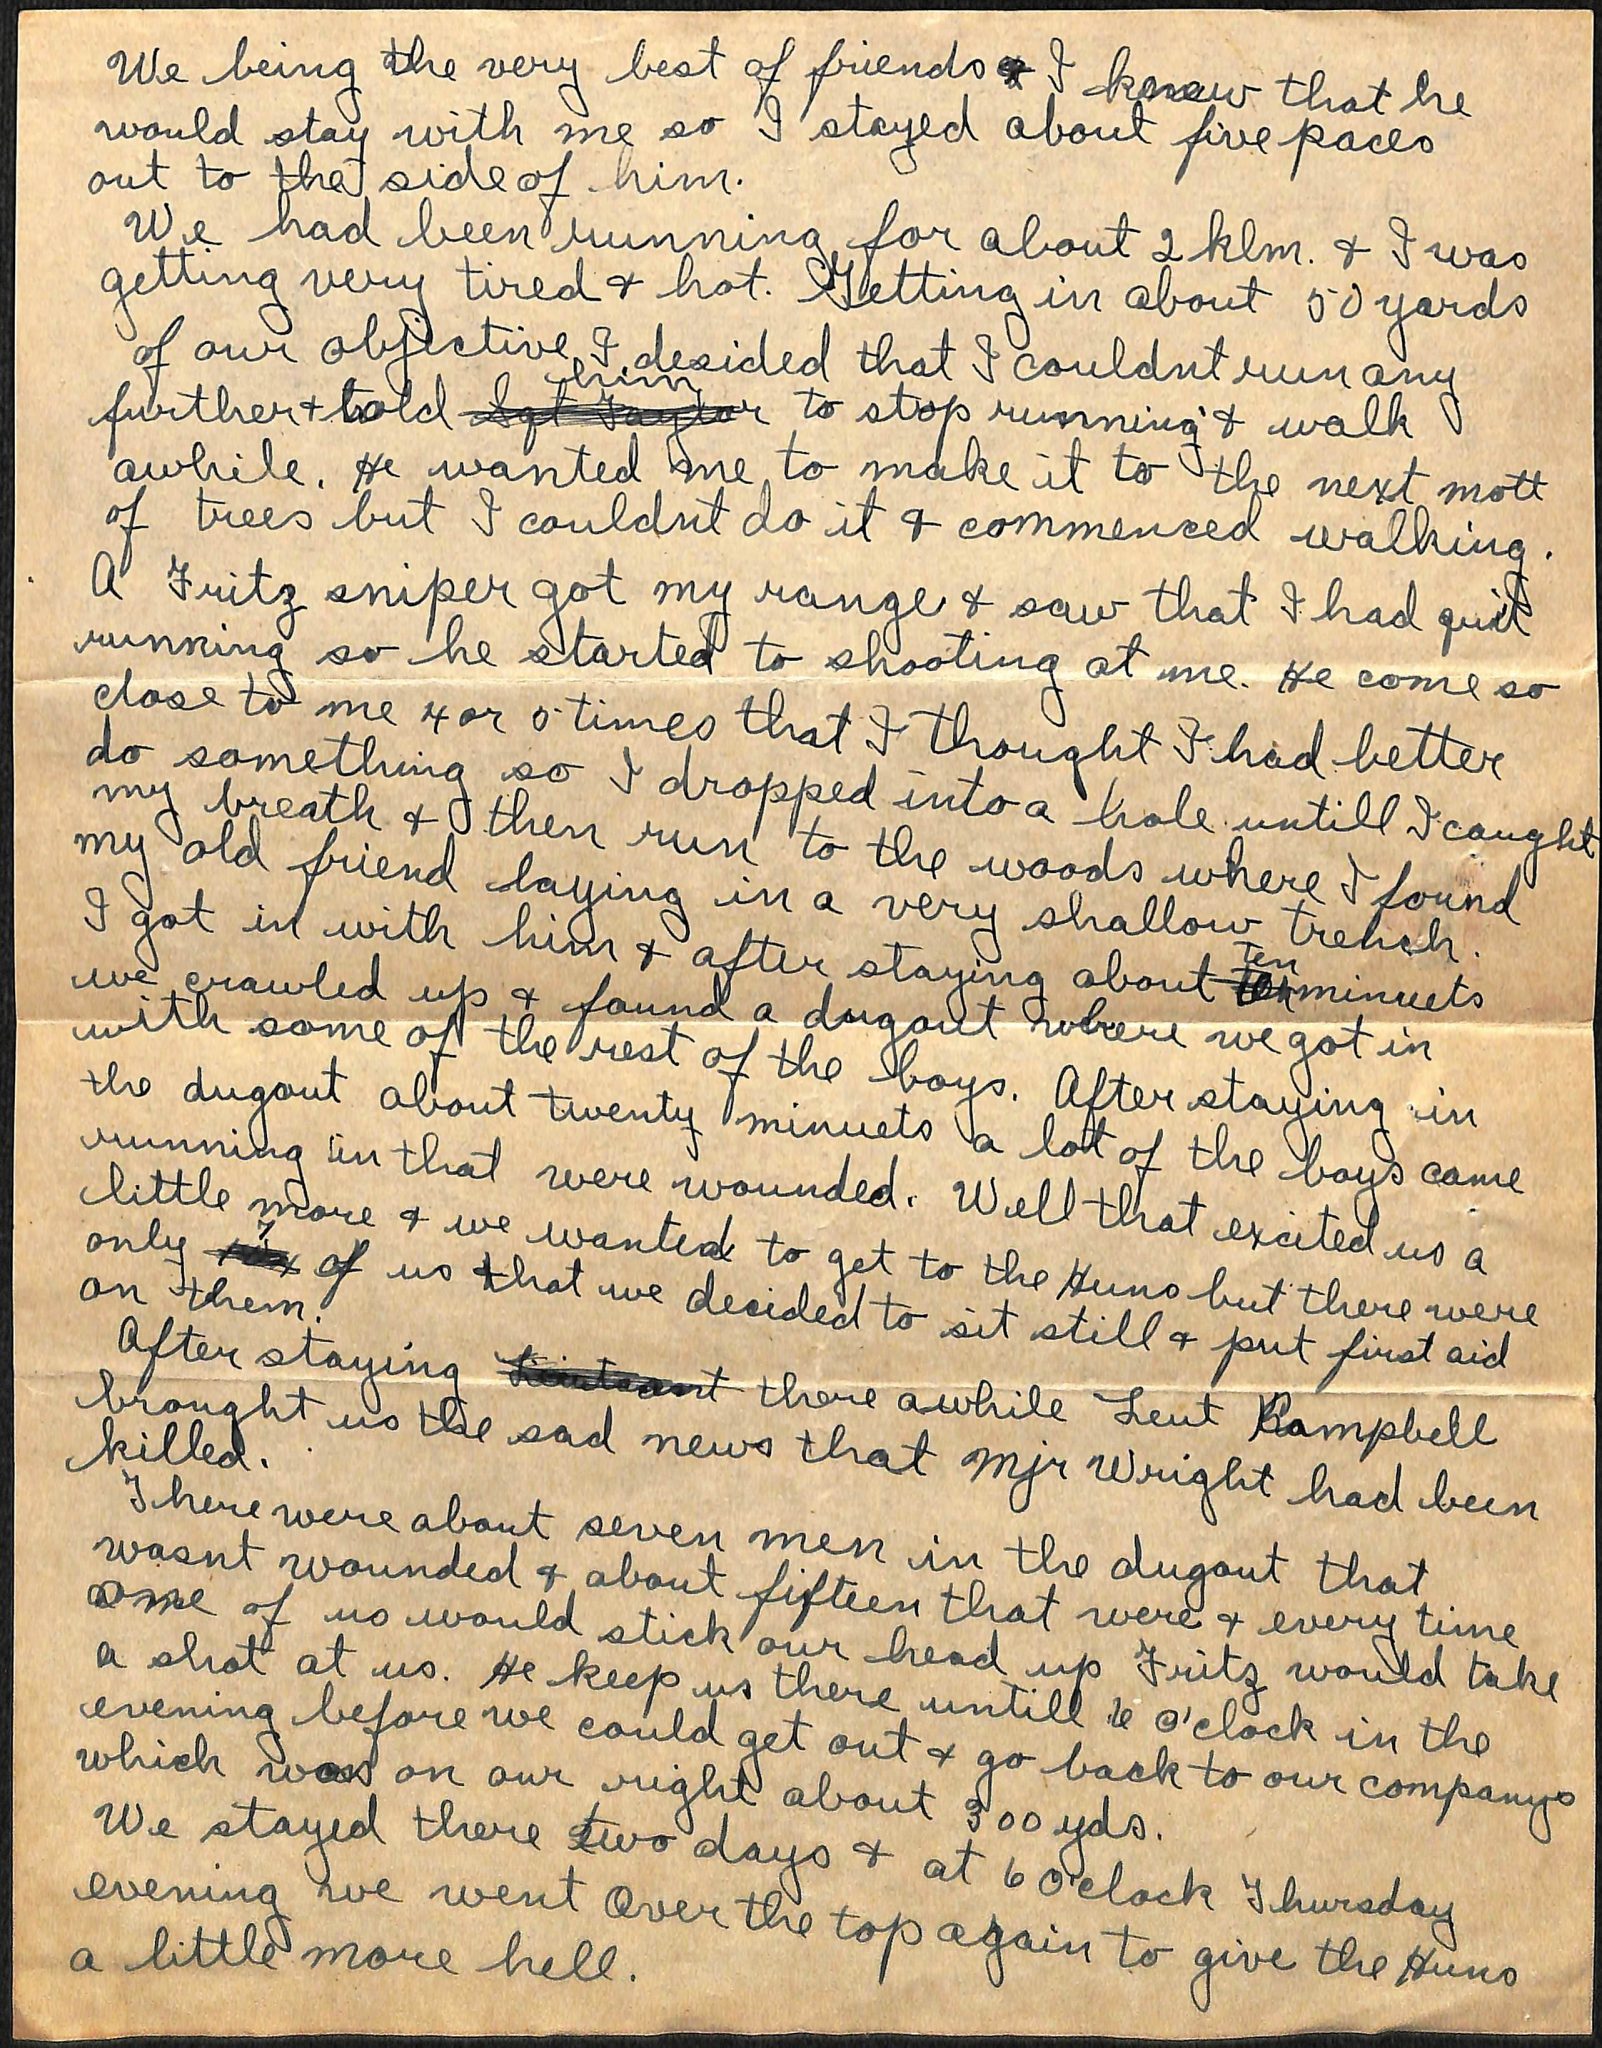 We being the very best of friends & I knew that he
would stay with me so I stayed about five paces
out to the side of him.
We had been running for about 2 klm. & I was
getting very tired & hot. Getting in about 50 yards
of our objective I desided that I couldnt run any
further & told Sgt Taylor him to stop running & walk
awhile. He wanted me to make it to the next mott
of trees but I couldnt do it & commenced walking.
A Fritz sniper got my range & saw that I had quit
running so he started to shooting at me. He come so
close to me 4 or 5 times that I thought I had better
do something so I dropped into a hole untill I caught
my breath & then run to the woods where I found
my old friend laying in a very shallow trench.
I got in with him & after staying about ten minuets
we crawled up & found a dugout where we got in
with some of the rest of the boys. After staying in
the dugout about twenty minuets a lot of the boys came
running in that were wounded. Well that excited us a
little more & we wanted to get to the Huns but there were
only 7 of us that we decided to sit still & put first aid
on them.
After staying there awhile Leut Kampbell
brought us the sad news that Mjr Wright had been
killed.
There were about seven men in the dugout that
wasnt wounded & about fifteen that were & every time
one of us would stick our head up Fritz would take
a shot at us. He keep us there untill 6 o'clock in the
evening before we could get out & go back to our companys
which was on our right about 300 yds.
We stayed there two days & at 6 O'clock Thursday
evening we went Over the top again to give the Huns
a little more hell.